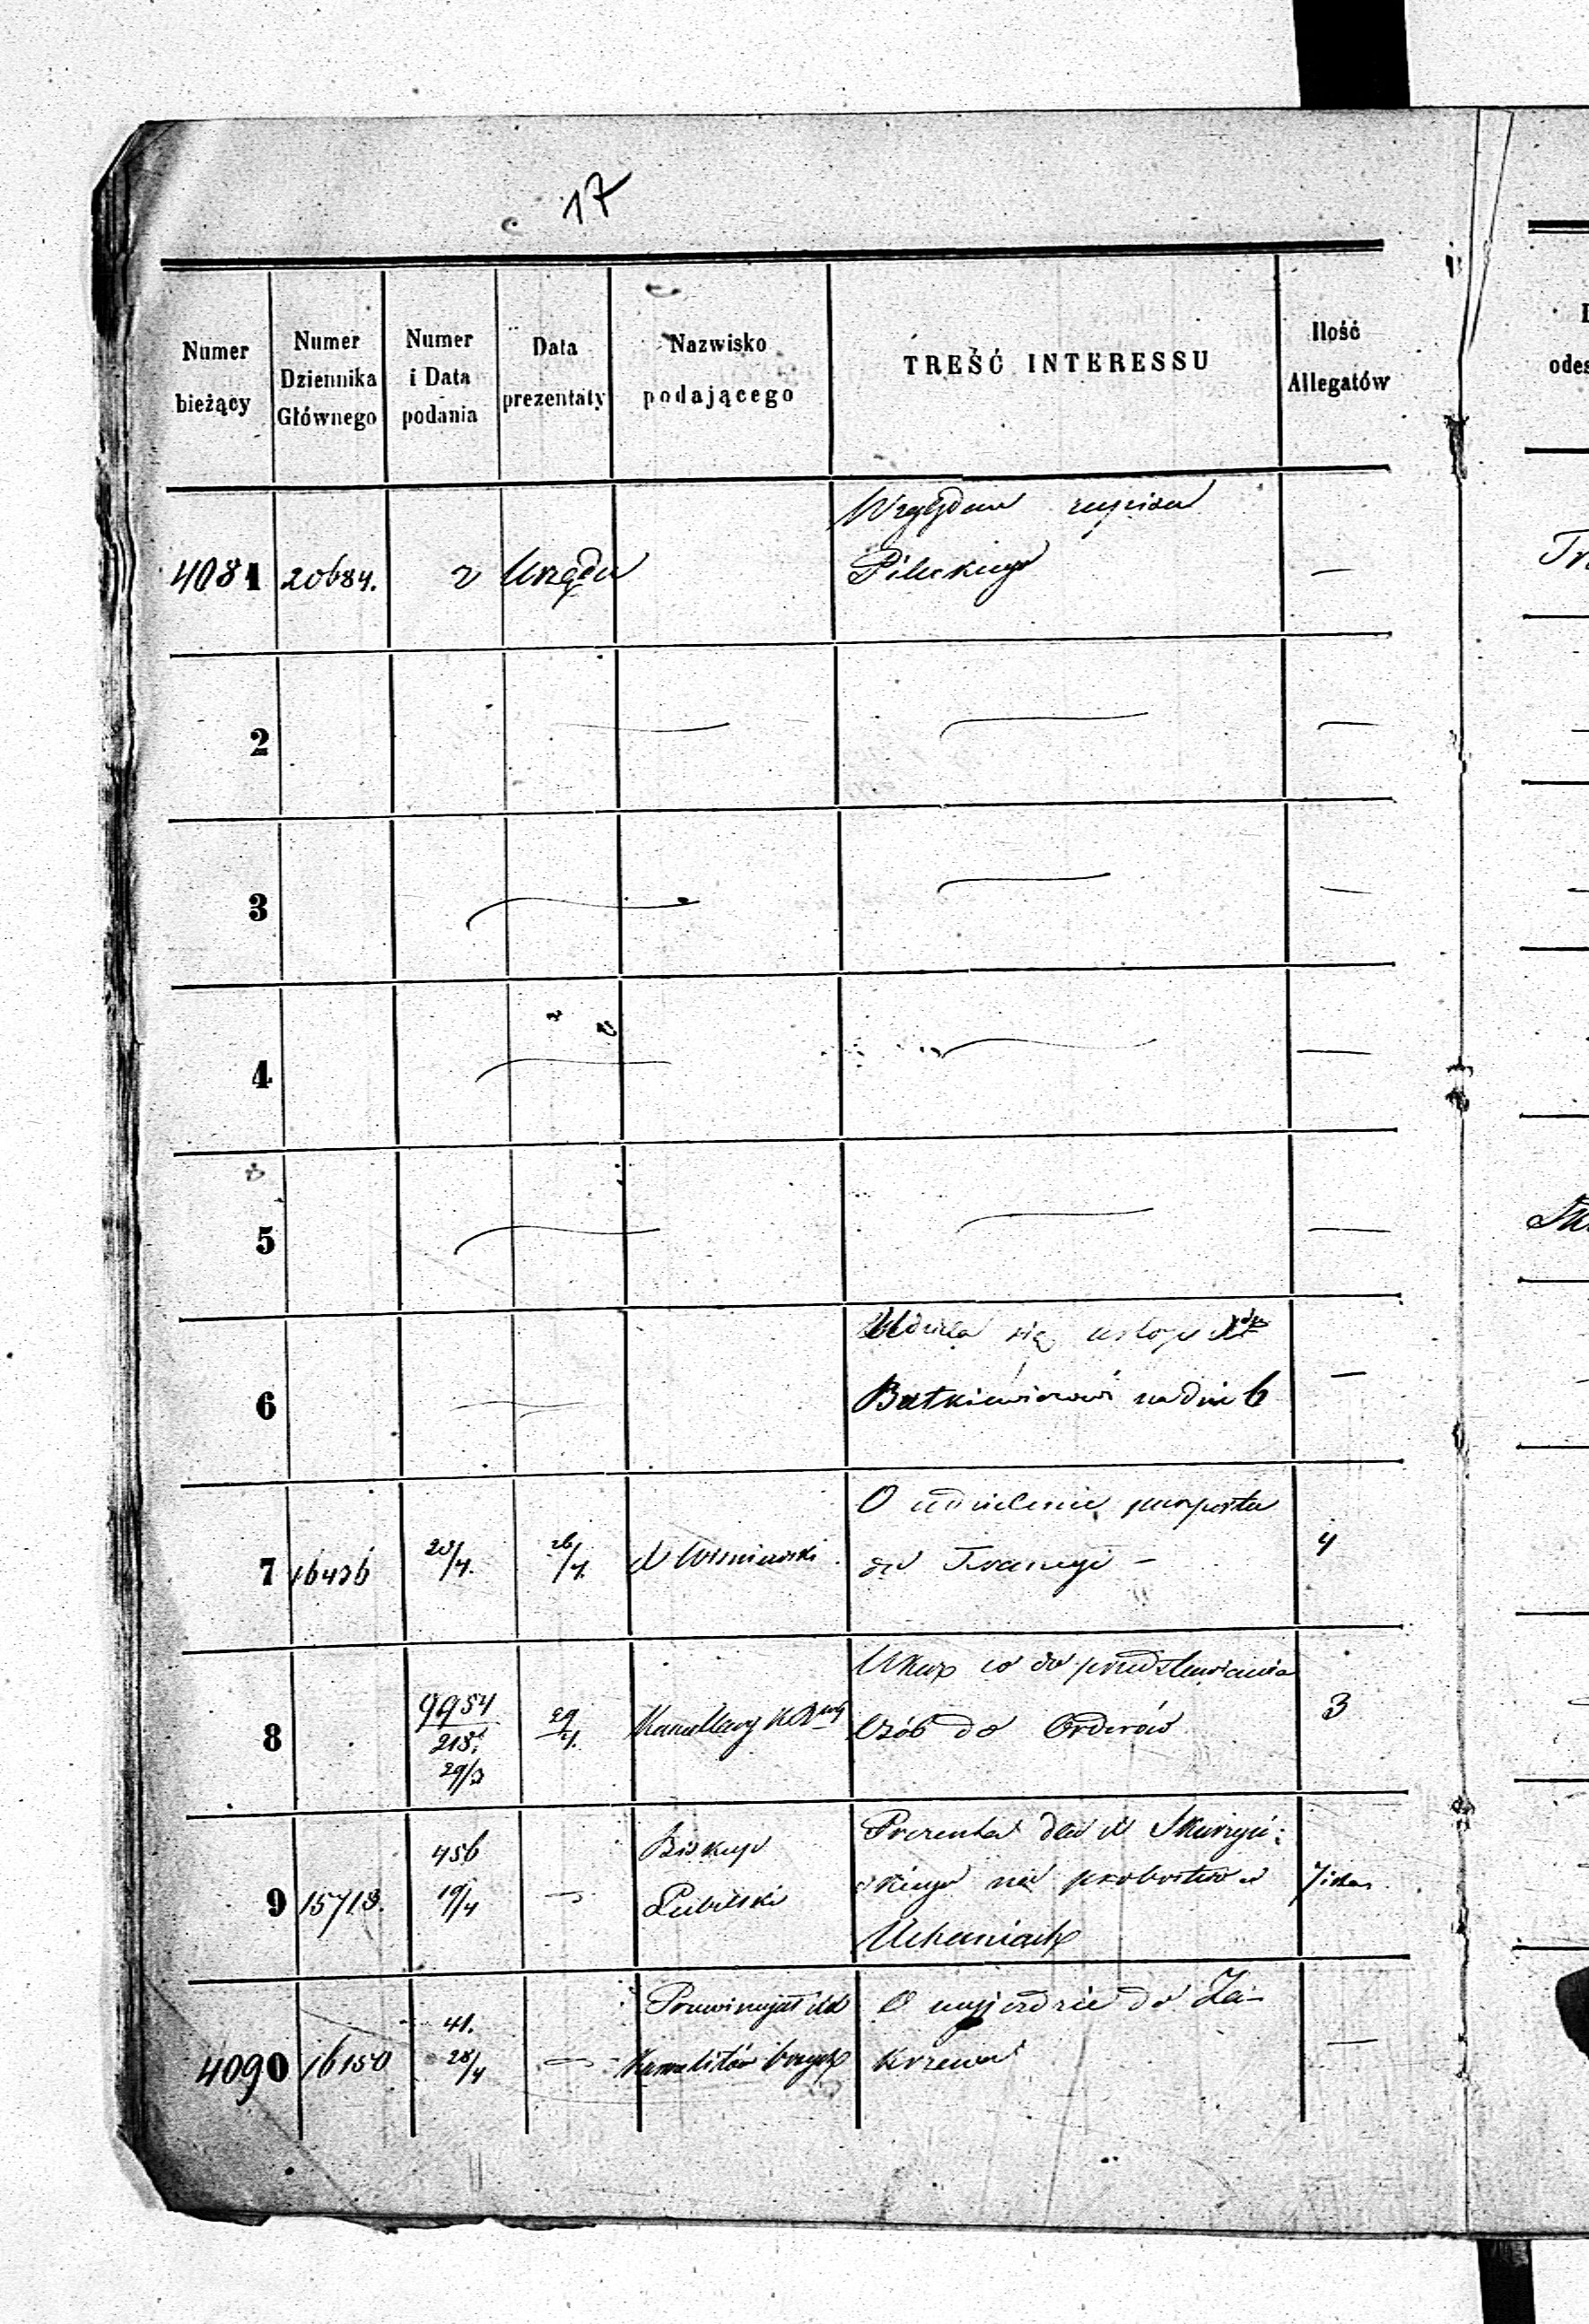 17
Numer bieżący
Numer Dziennika Głównego
Numer i Data podania
Data prezentaty
Nazwisko podającego
TREŚĆ INTERESSU
Ilość Allegatów
4081 20684. z Urzędu Względem zapisu
Pileckiego —
2 — — —
3 — — —
4 — — —
5 — — —
Udziela się urlop
6 — Butkiewiczowi na dni 6 —
O udzielenie paszportu
7 16436 20/4. 26/4. Wiśniewski do Francyi — 4
Ukaz co do przedstawiania
8 9954 29/4. Kancellary Osób do Orderów 3
218
29/3
456 Biskup Prezenta dla Skurzyń:
9 15713. 19/4 — Lubelski skiego na probostwo w
Uchaniach
41. O wyjezdzie do Za-
4090 16150 28/4 — Karmelitów krzewa —